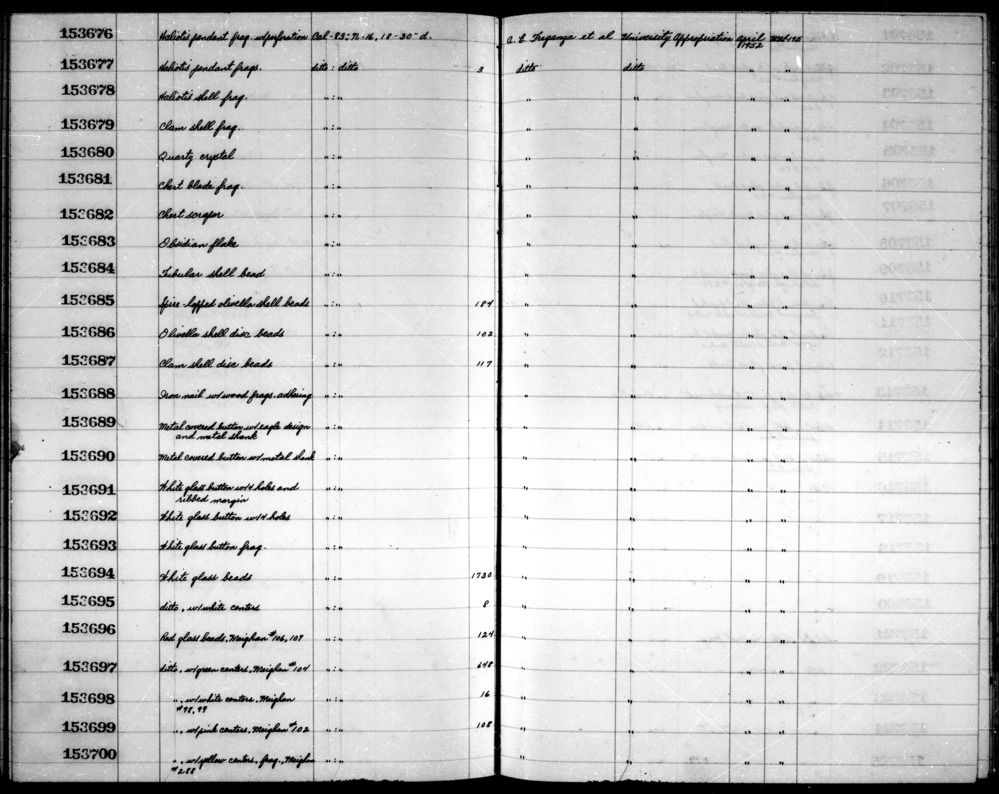 153676 Haliotis pendant frag. w/perforation Cal-83: N-16, 18-30" d. A. E. Treganza et al University Appropriation April 1952
153677 Haliotis pendant frags. ditto : ditto 3 ditto ditto " "
153678 Haliotis shell frag. " : " " " " "
153679 Clam shell frag. " : " " " " "
153680 Quartz crystal " : " " " " "
153681 Chert blade frag. " : " " " " "
153682 Chert scraper " : " " " " "
153683 Obsidian flake " : " " " " "
153684 Tubular shell bead " : " " " " "
153685 Spire-lopped olivella shell beads " : " 184 " " " "
153686 Olivella shell disc beads " : " 102 " " " "
153687 Clam shell disc beads " : " 117 " " " "
153688 Iron nail w/wood frags. adhering " : " " " " "
153689 Metal covered button w/eagle design " : " " " " "
and metal shank
153690 Metal covered button w/metal shank " : " " " " "
153691 White glass button w/4 holes and " : " " " " "
ribbed margin
153692 White glass button w/4 holes " : " " " " "
153693 White glass button frag. " : " " " " "
153694 White glass beads " : " 1730 " " " "
153695 ditto, w/white centers " : " 8 " " " "
153696 Red glass beads, Meighan #106, 107 " : " 124 " " " "
153697 ditto, w/green centers, Meighan #104 " : " 648 " " " "
153698 ", w/white centers, Meighan " : " 16 " " " "
#98, 99
153699 ", w/pink centers, Meighan #102 " : " 108 " " " "
153700 ", w/yellow centers, frag., Meighan " : " " " " "
#288